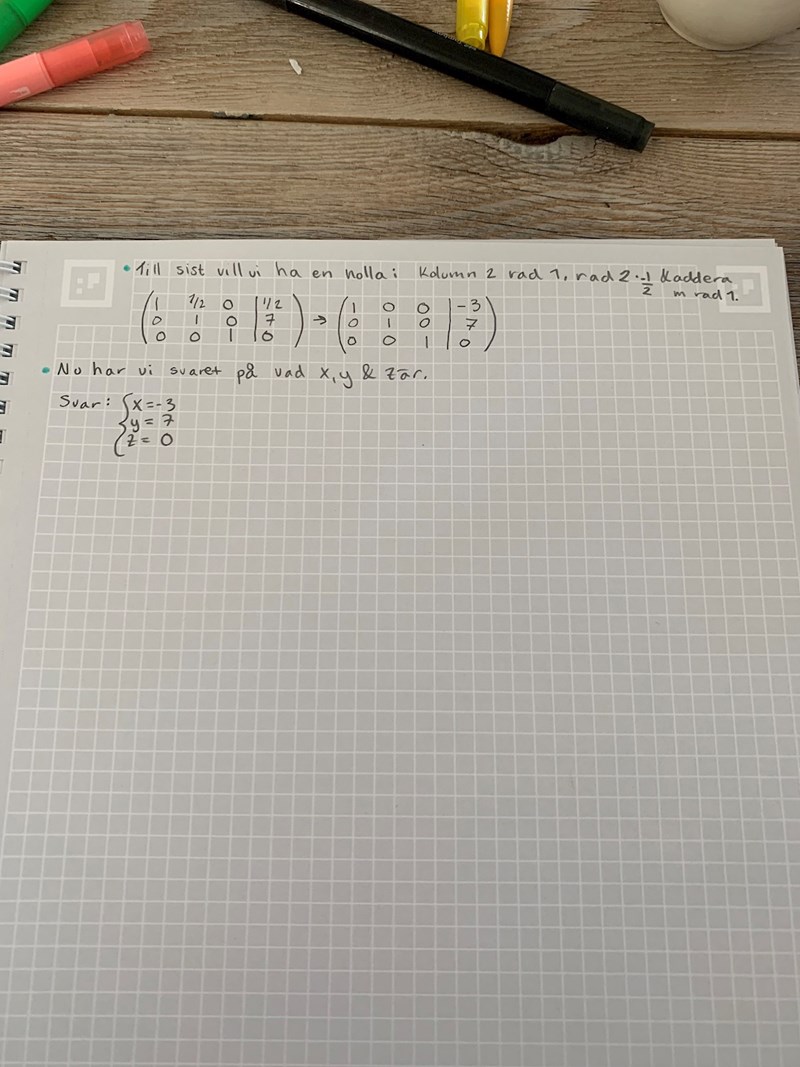 • Till sist vill vi ha en nolla i kolumn 2 rad 1, rad 2 · -1/2 & addera m rad 1.
(1 1/2 0 | 1/2) → (1 0 0 | -3)
(0 1 0 | 7) (0 1 0 | 7)
(0 0 1 | 0) (0 0 1 | 0)
• Nu har vi svaret på vad x, y & z är.
Svar: { x = -3
y = 7
z = 0